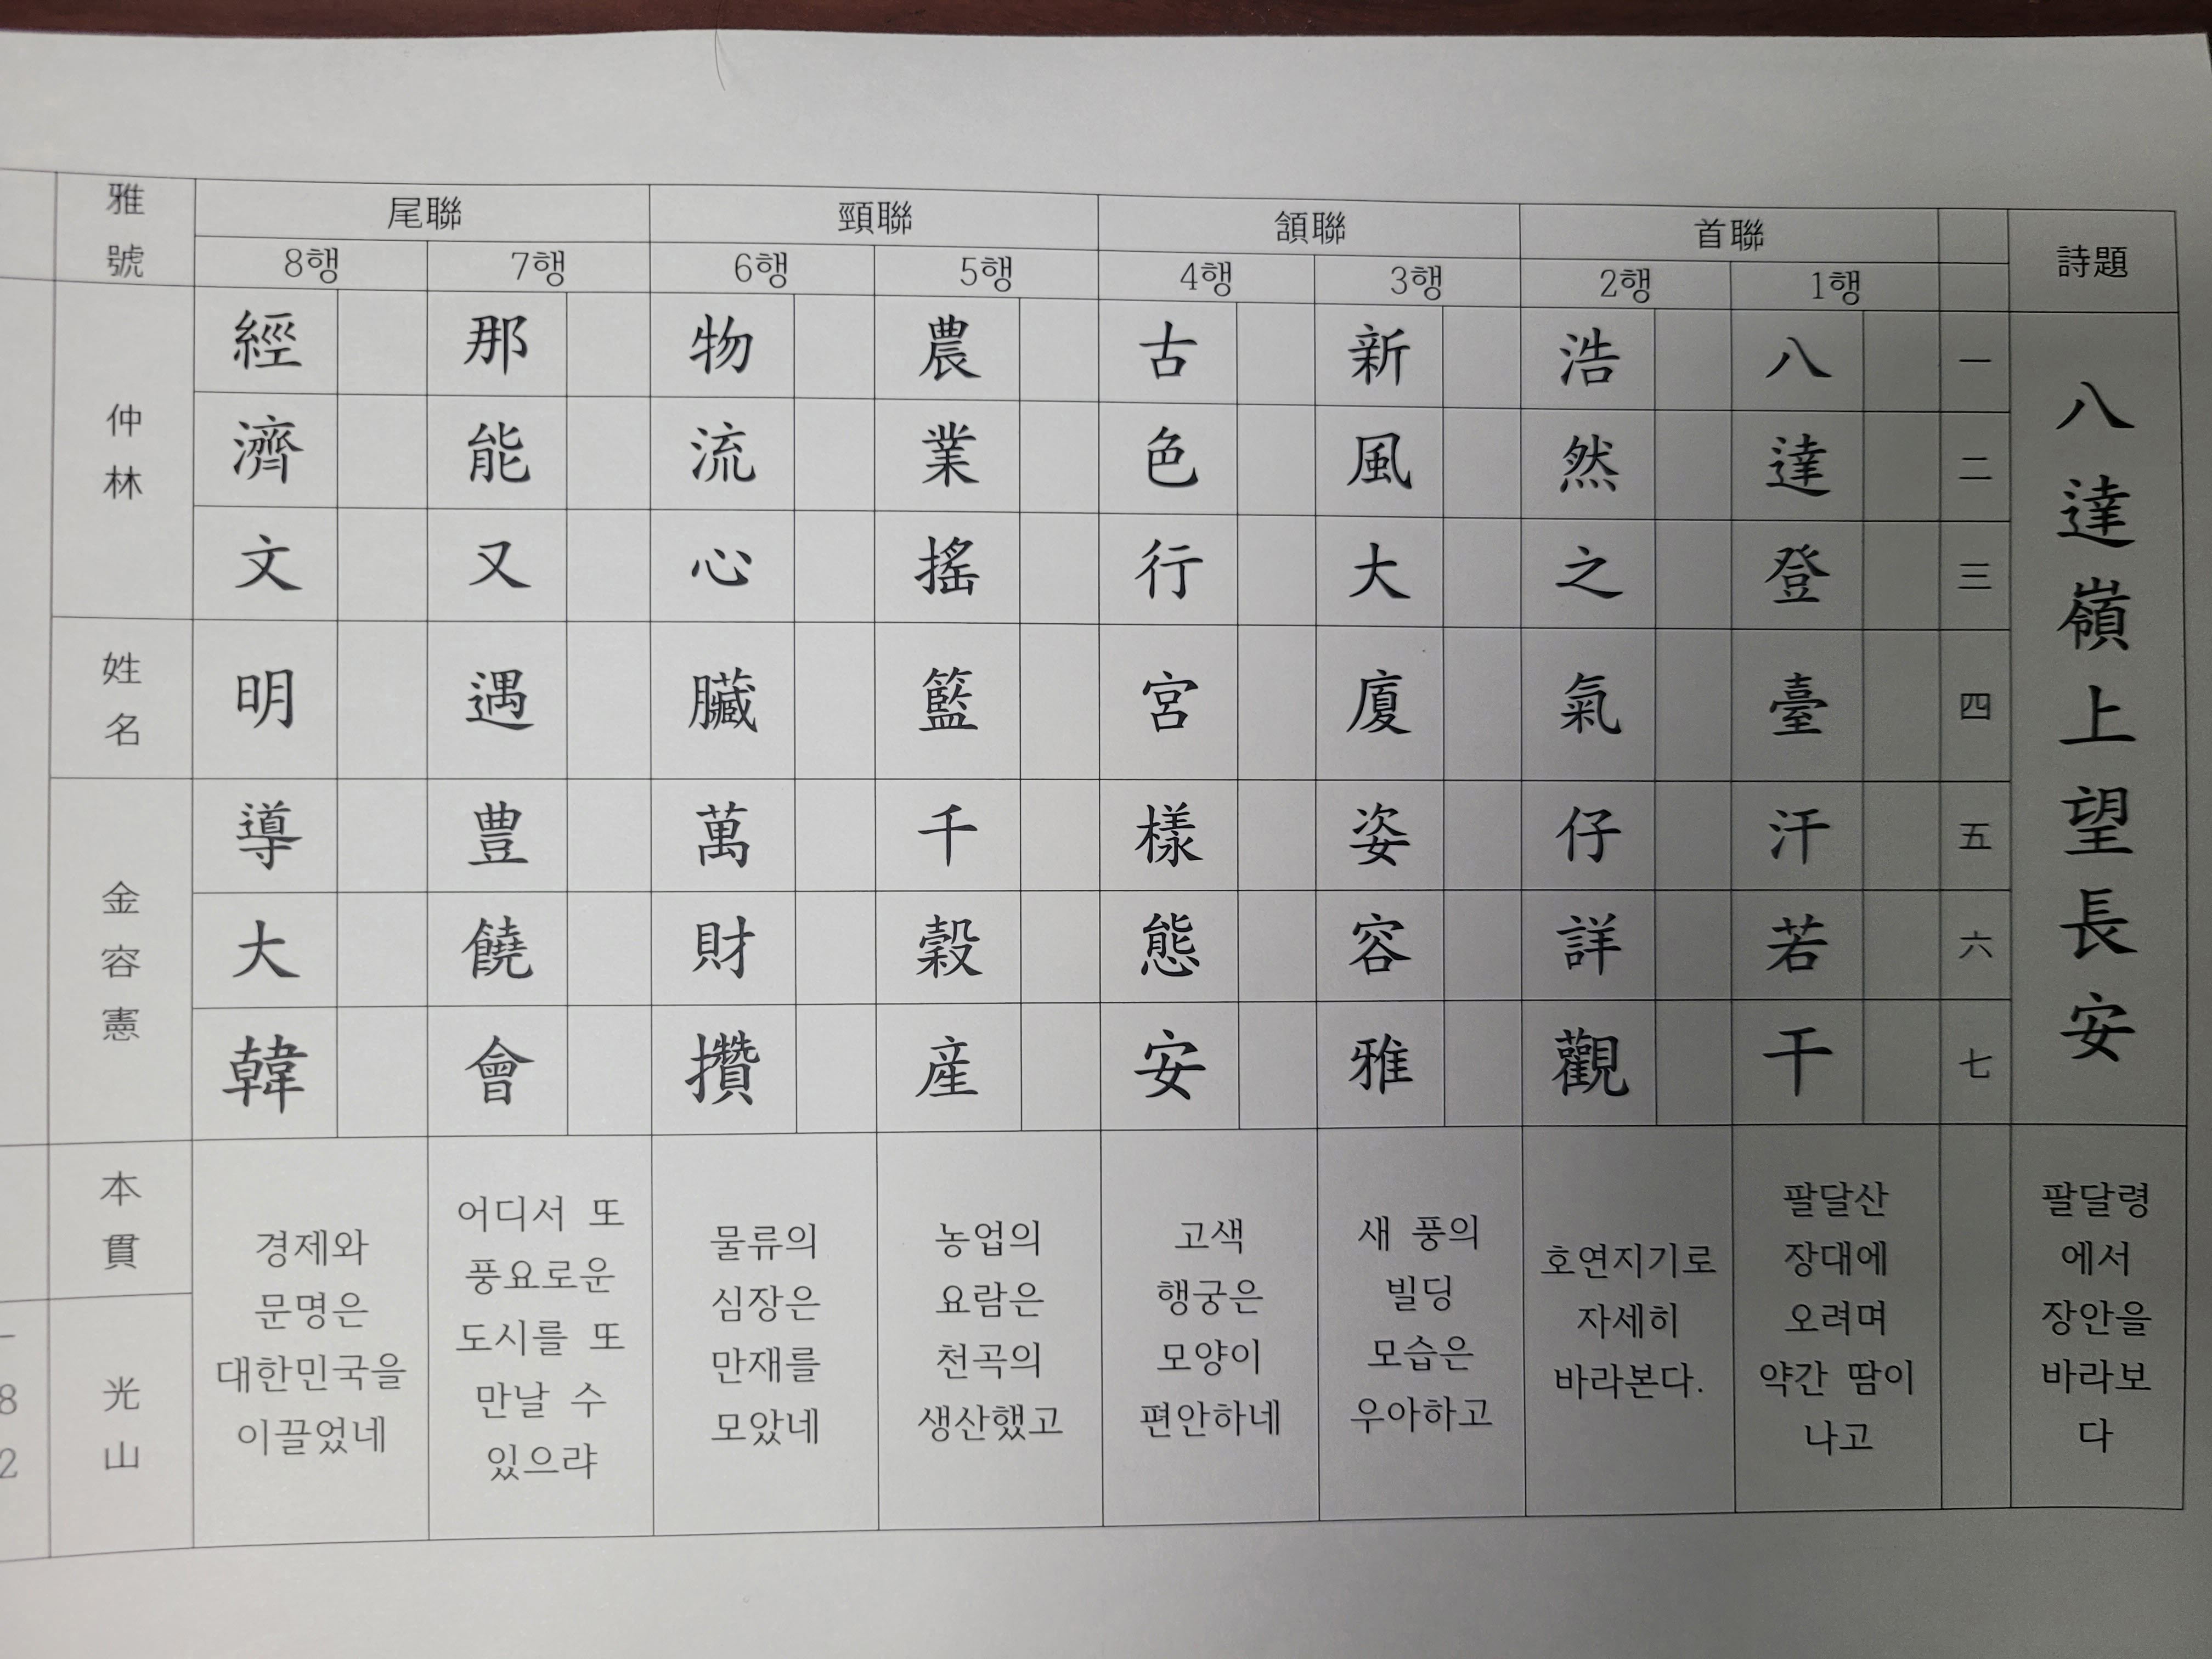 詩題
八達嶺上望長安
팔달령
에서
장안을
바라보
다
一
二
三
四
五
六
七
首聯
1행
八達登臺汗若干
팔달산
장대에
오려며
약간 땀이
나고
2행
浩然之氣仔詳觀
호연지기로
자세히
바라본다.
頷聯
3행
新風大廈姿容雅
새 풍의
빌딩
모습은
우아하고
4행
古色行宮樣態安
고색
행궁은
모양이
편안하네
頸聯
5행
農業搖籃千穀産
농업의
요람은
천곡의
생산했고
6행
物流心臟萬財攢
물류의
심장은
만재를
모았네
尾聯
7행
那能又遇豊饒會
어디서 또
풍요로운
도시를 또
만날 수
있으랴
8행
經濟文明導大韓
경제와
문명은
대한민국을
이끌었네
雅號
仲林
姓名
金容憲
本貫
光山
8
2